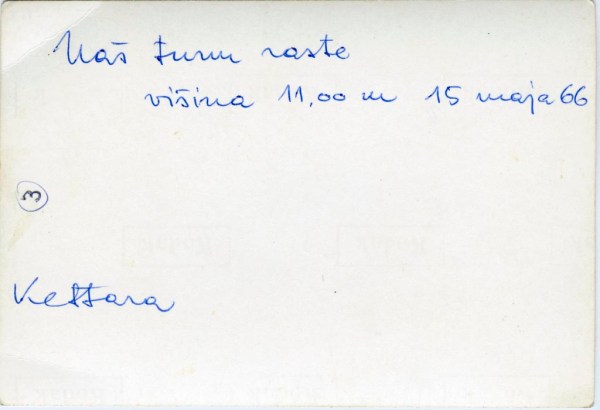 Naš turm raste
višina 11,00 m 15 maja 66
3
Kettara